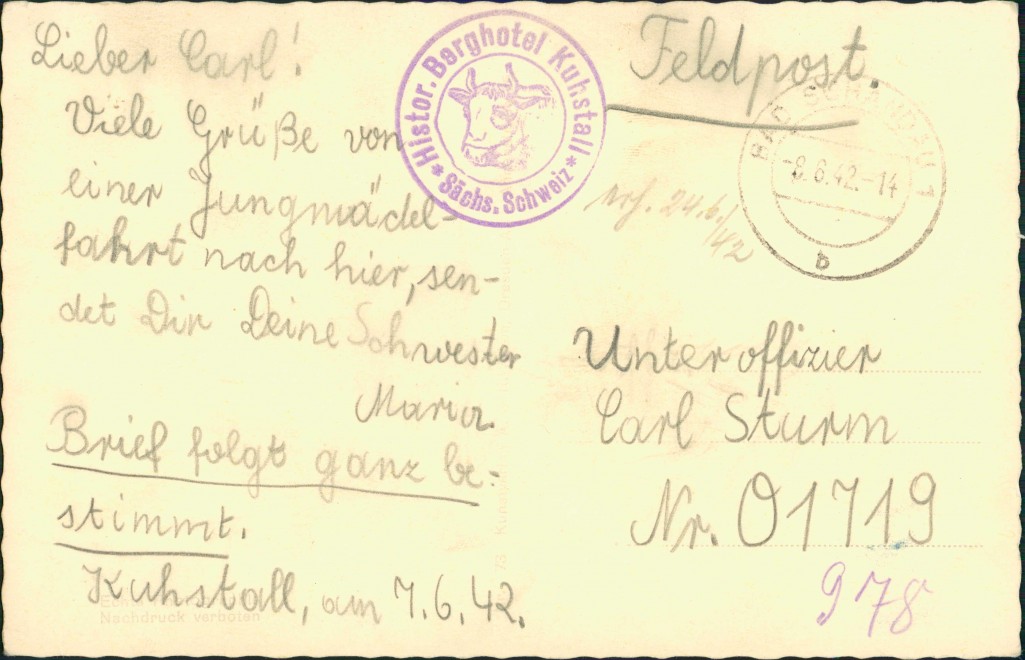 Lieber Carl!
Viele Grüße von
einer Jungmädel-
fahrt nach hier, sen-
det Dir Deine Schwester
Maria.
Brief folgt ganz be-
stimmt.
Kuhstall, am 7.6.42.
Nachdruck verboten
Histor. Berghotel Kuhstall
* Sächs. Schweiz *
Feldpost.
BAD SCHANDAU 1
-8.6.42.-14
b
erh. 24.6./
42
Unteroffizier
Carl Sturm
Nr. 01719
978